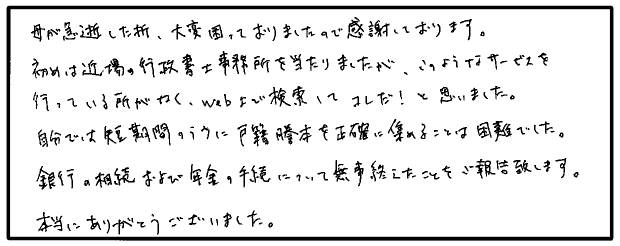 母が急逝した折、大変困っておりましたので感謝しております。
初めは近場の行政書士事務所を当たりましたが、このようなサービスを
行っている所がなく、webよで検索してコレだ！と思いました。
自分では短期間のうちに戸籍謄本を正確に集めることは困難でした。
銀行の相続および年金の手続について無事終えたことをご報告致します。
本当にありがとうございました。